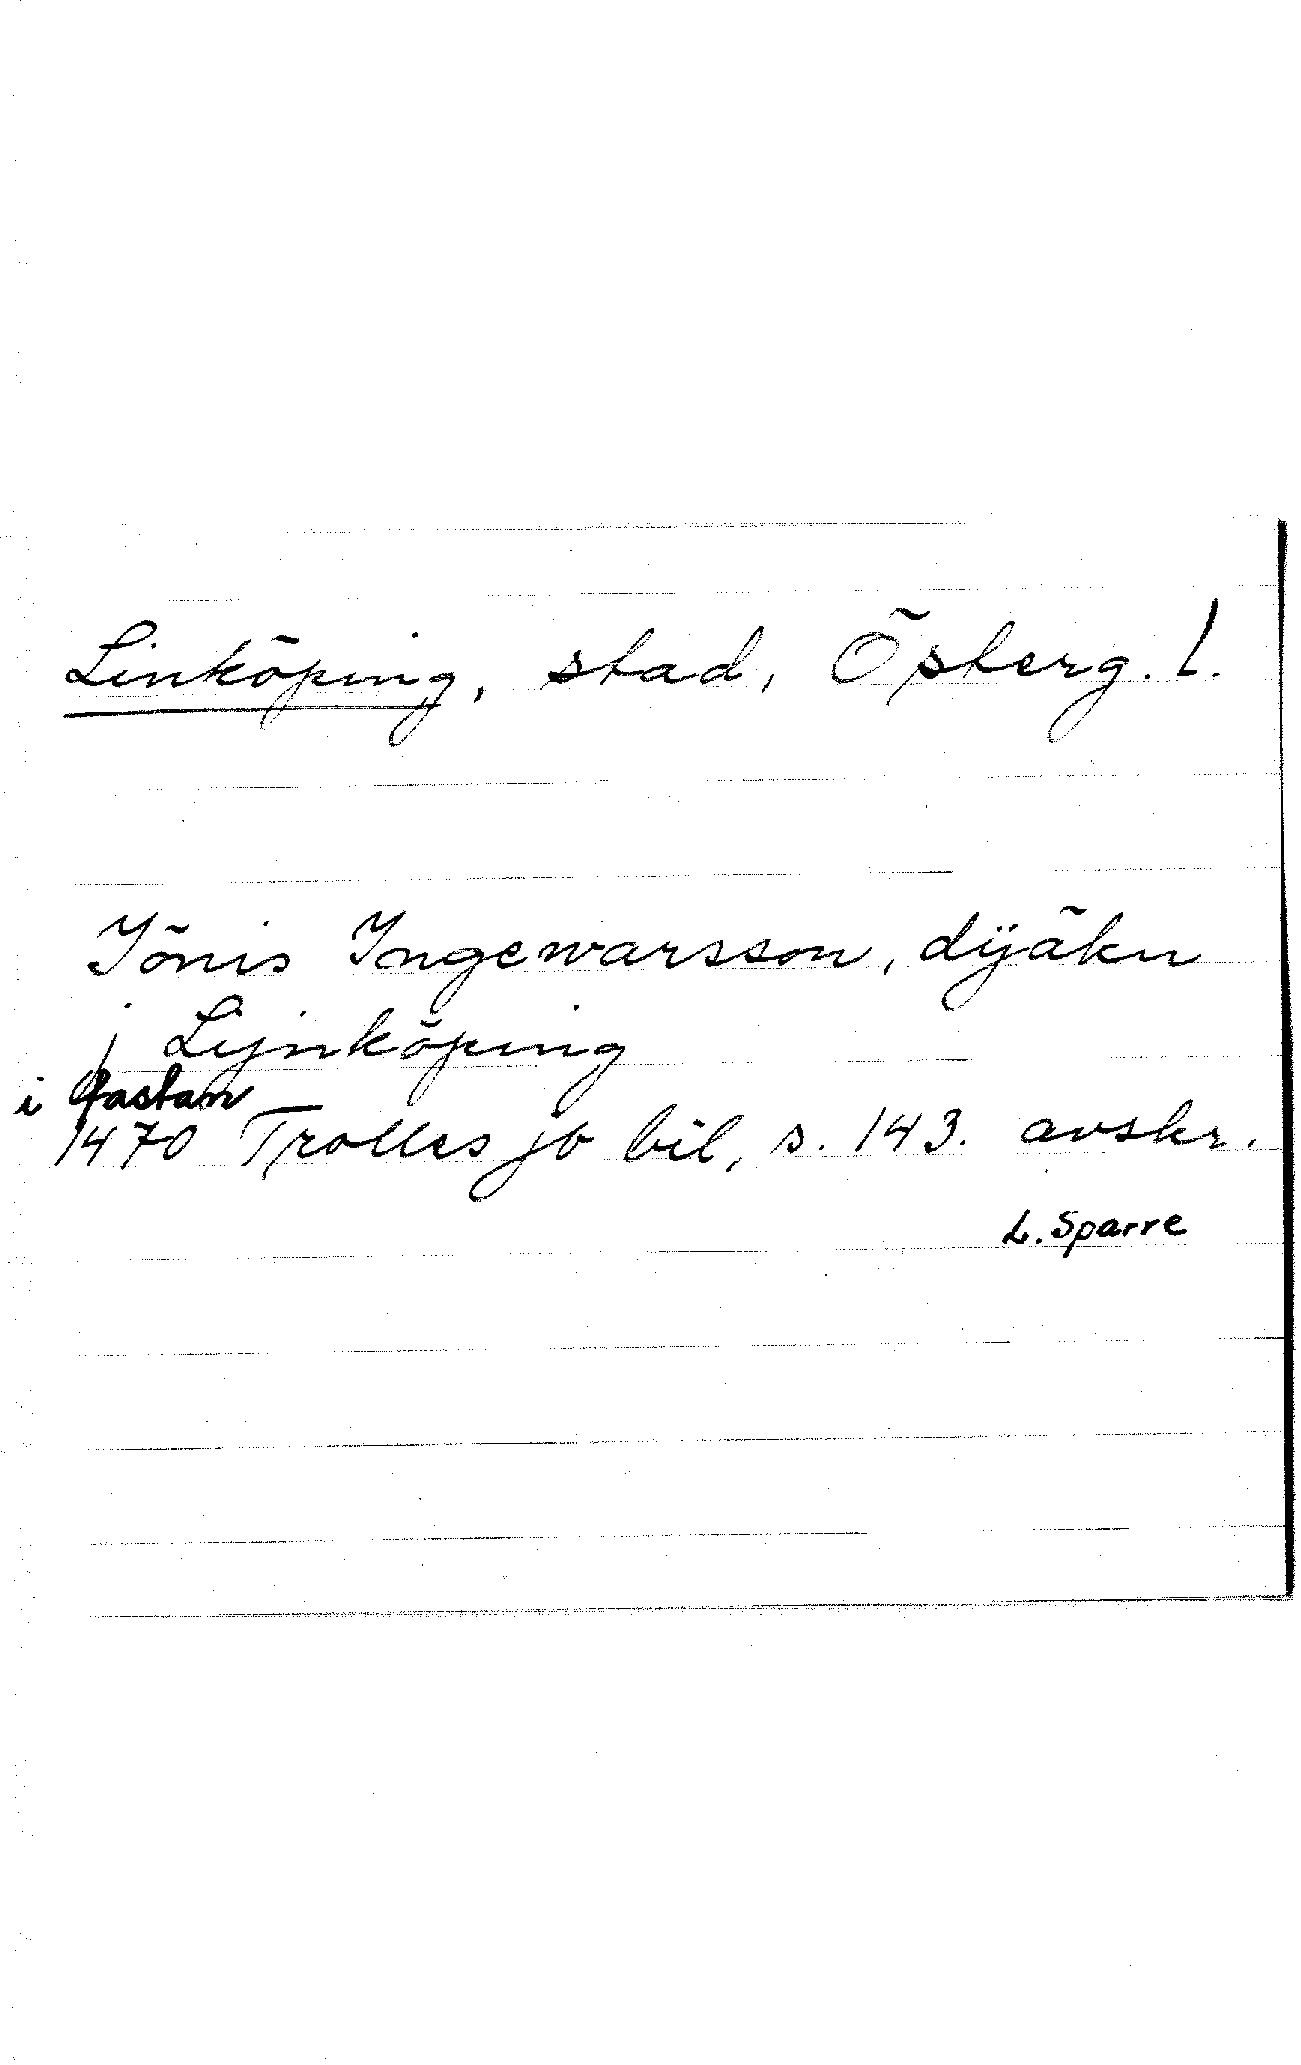 Linköping, stad, Österg. l.
Jönis Ingewarsson, dyäkn
j Lynköping
i fastan
1470 Trolles jb bil, s. 143. avskr.
L. Sparre